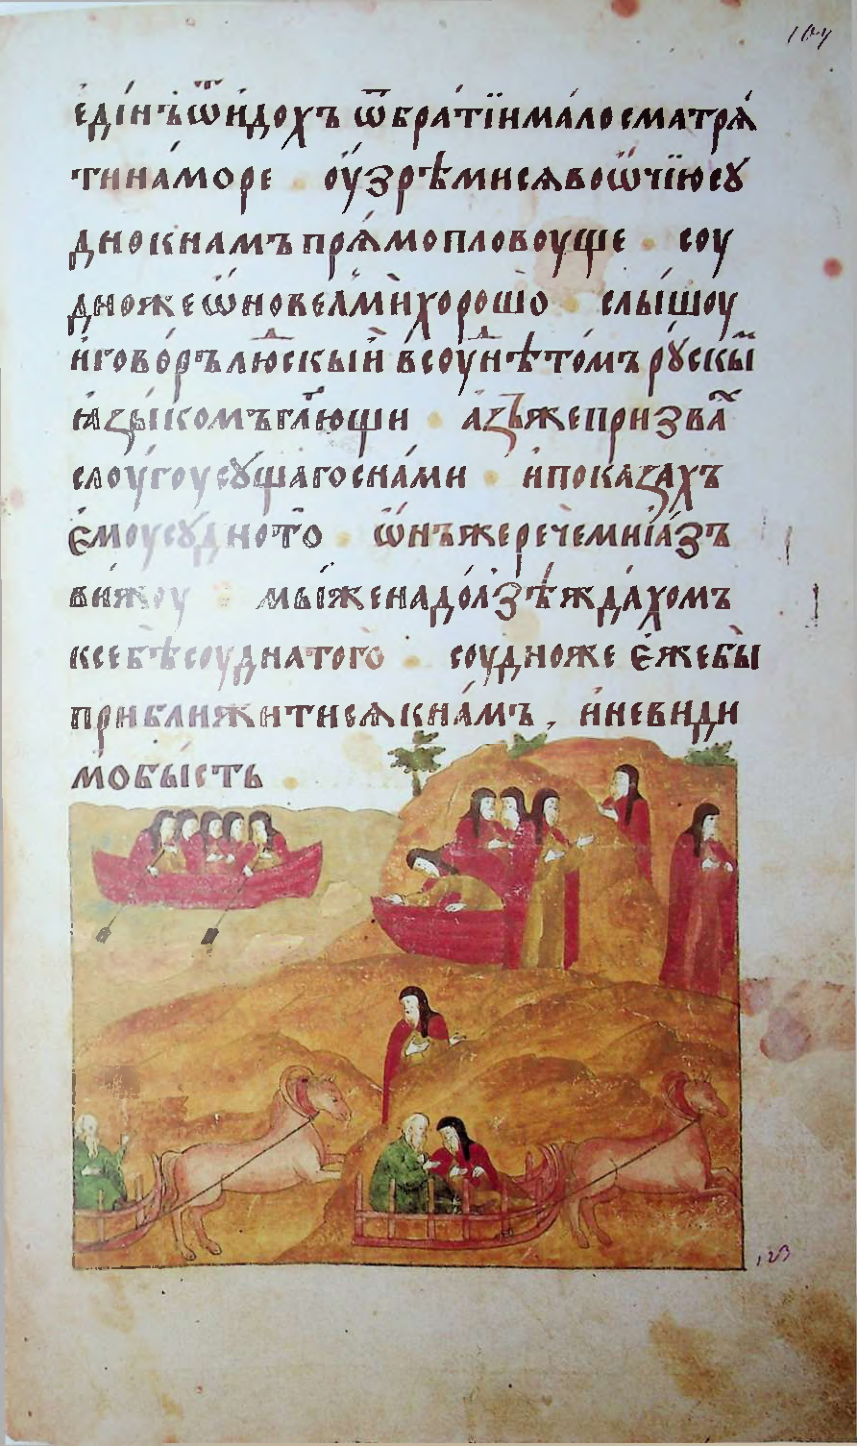 104
е҆ді́нъ ѿи́дохъ ѿ бра́тїи ма́ло сматря́
ти на́ море · оу҆зрѣ́ ми ся во ѻ҆чїю су
дно к на́мъ пря́мо пловоуще · соу
дно же ѻ҆но велми̇̀ хорошо̀ · слы́шоу
и҆ гово́ръ лю́дскый в соуднѣ́ то́мъ ру́скы́м
ꙗ҆зы́комъ гл҃ющи · а҆зъ́ же призва́х
слоу́гоу су́щаго с на́ми · и҆ показа́хъ
е҆моу су́дно то̀ · ѻ҆нъ же рече́ ми і҆ а҆́зъ
ви́жоу · мы́ же на до́лзѣ́ жда́хомъ
к себѣ̀ соудна того̀ · соудно же є҆же бы̀
приближитися к на́мъ , и҆ невиди
мо бы́сть
123